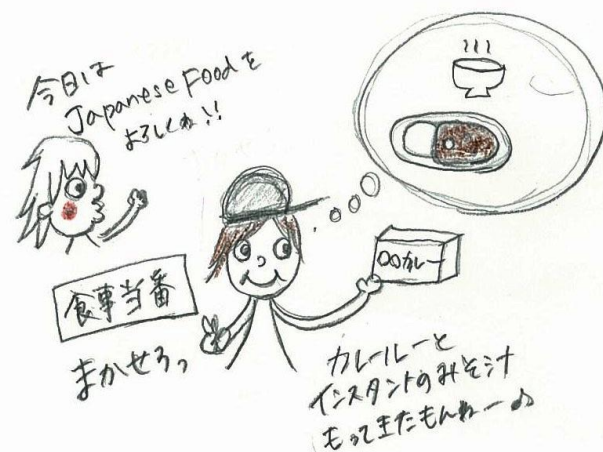 今日は
Japanese Foodを
よろしくね!!
食事当番
まかせろっ
〇〇カレー
カレールーと
インスタントのみそ汁
もってきたもんねー♪